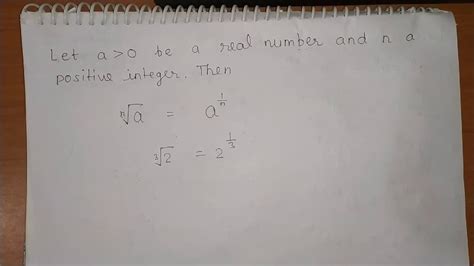 Let a > 0 be a real number and n a
positive integer. Then
ⁿ√a = a^(1/n)
³√2 = 2^(1/3)